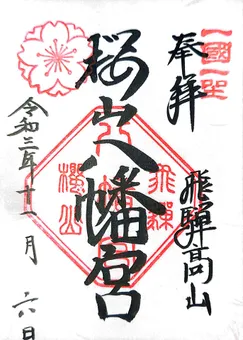 奉拝
飛騨高山
桜山八幡宮
令和三年十一月六日
飛騨
櫻山